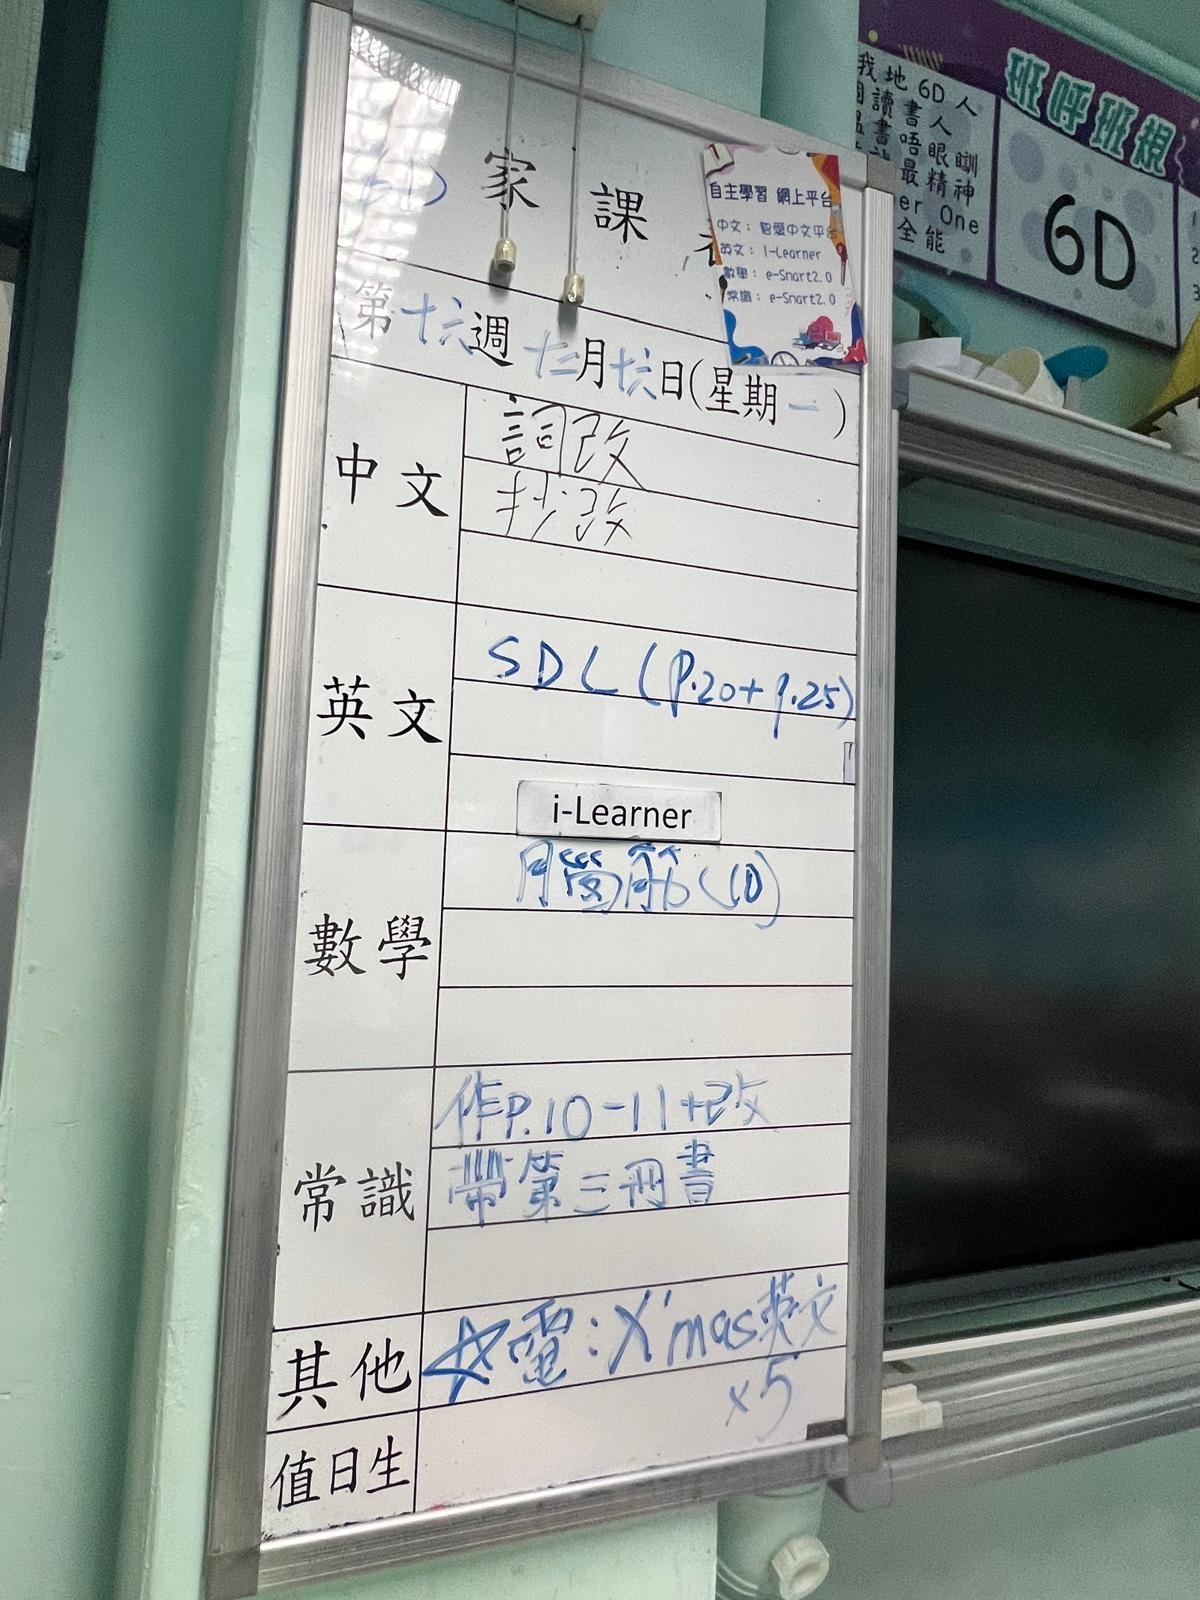 6D 家課
第十六週 十二月十六日(星期一)
自主學習 網上平台
中文: 智愛中文平台
英文: i-Learner
數學: e-Smart2.0
常識: e-Smart2.0
中文
詞改
抄改
英文
SDL (p.20+p.25)
i-Learner
數學
腦筋(10)
常識
作P.10-11+改
帶第三冊書
其他
☆電:X'mas英文
x5
值日生
班呼班規
我地6D人
讀書人
書唔眼瞓
最精神
er One
全能
6D